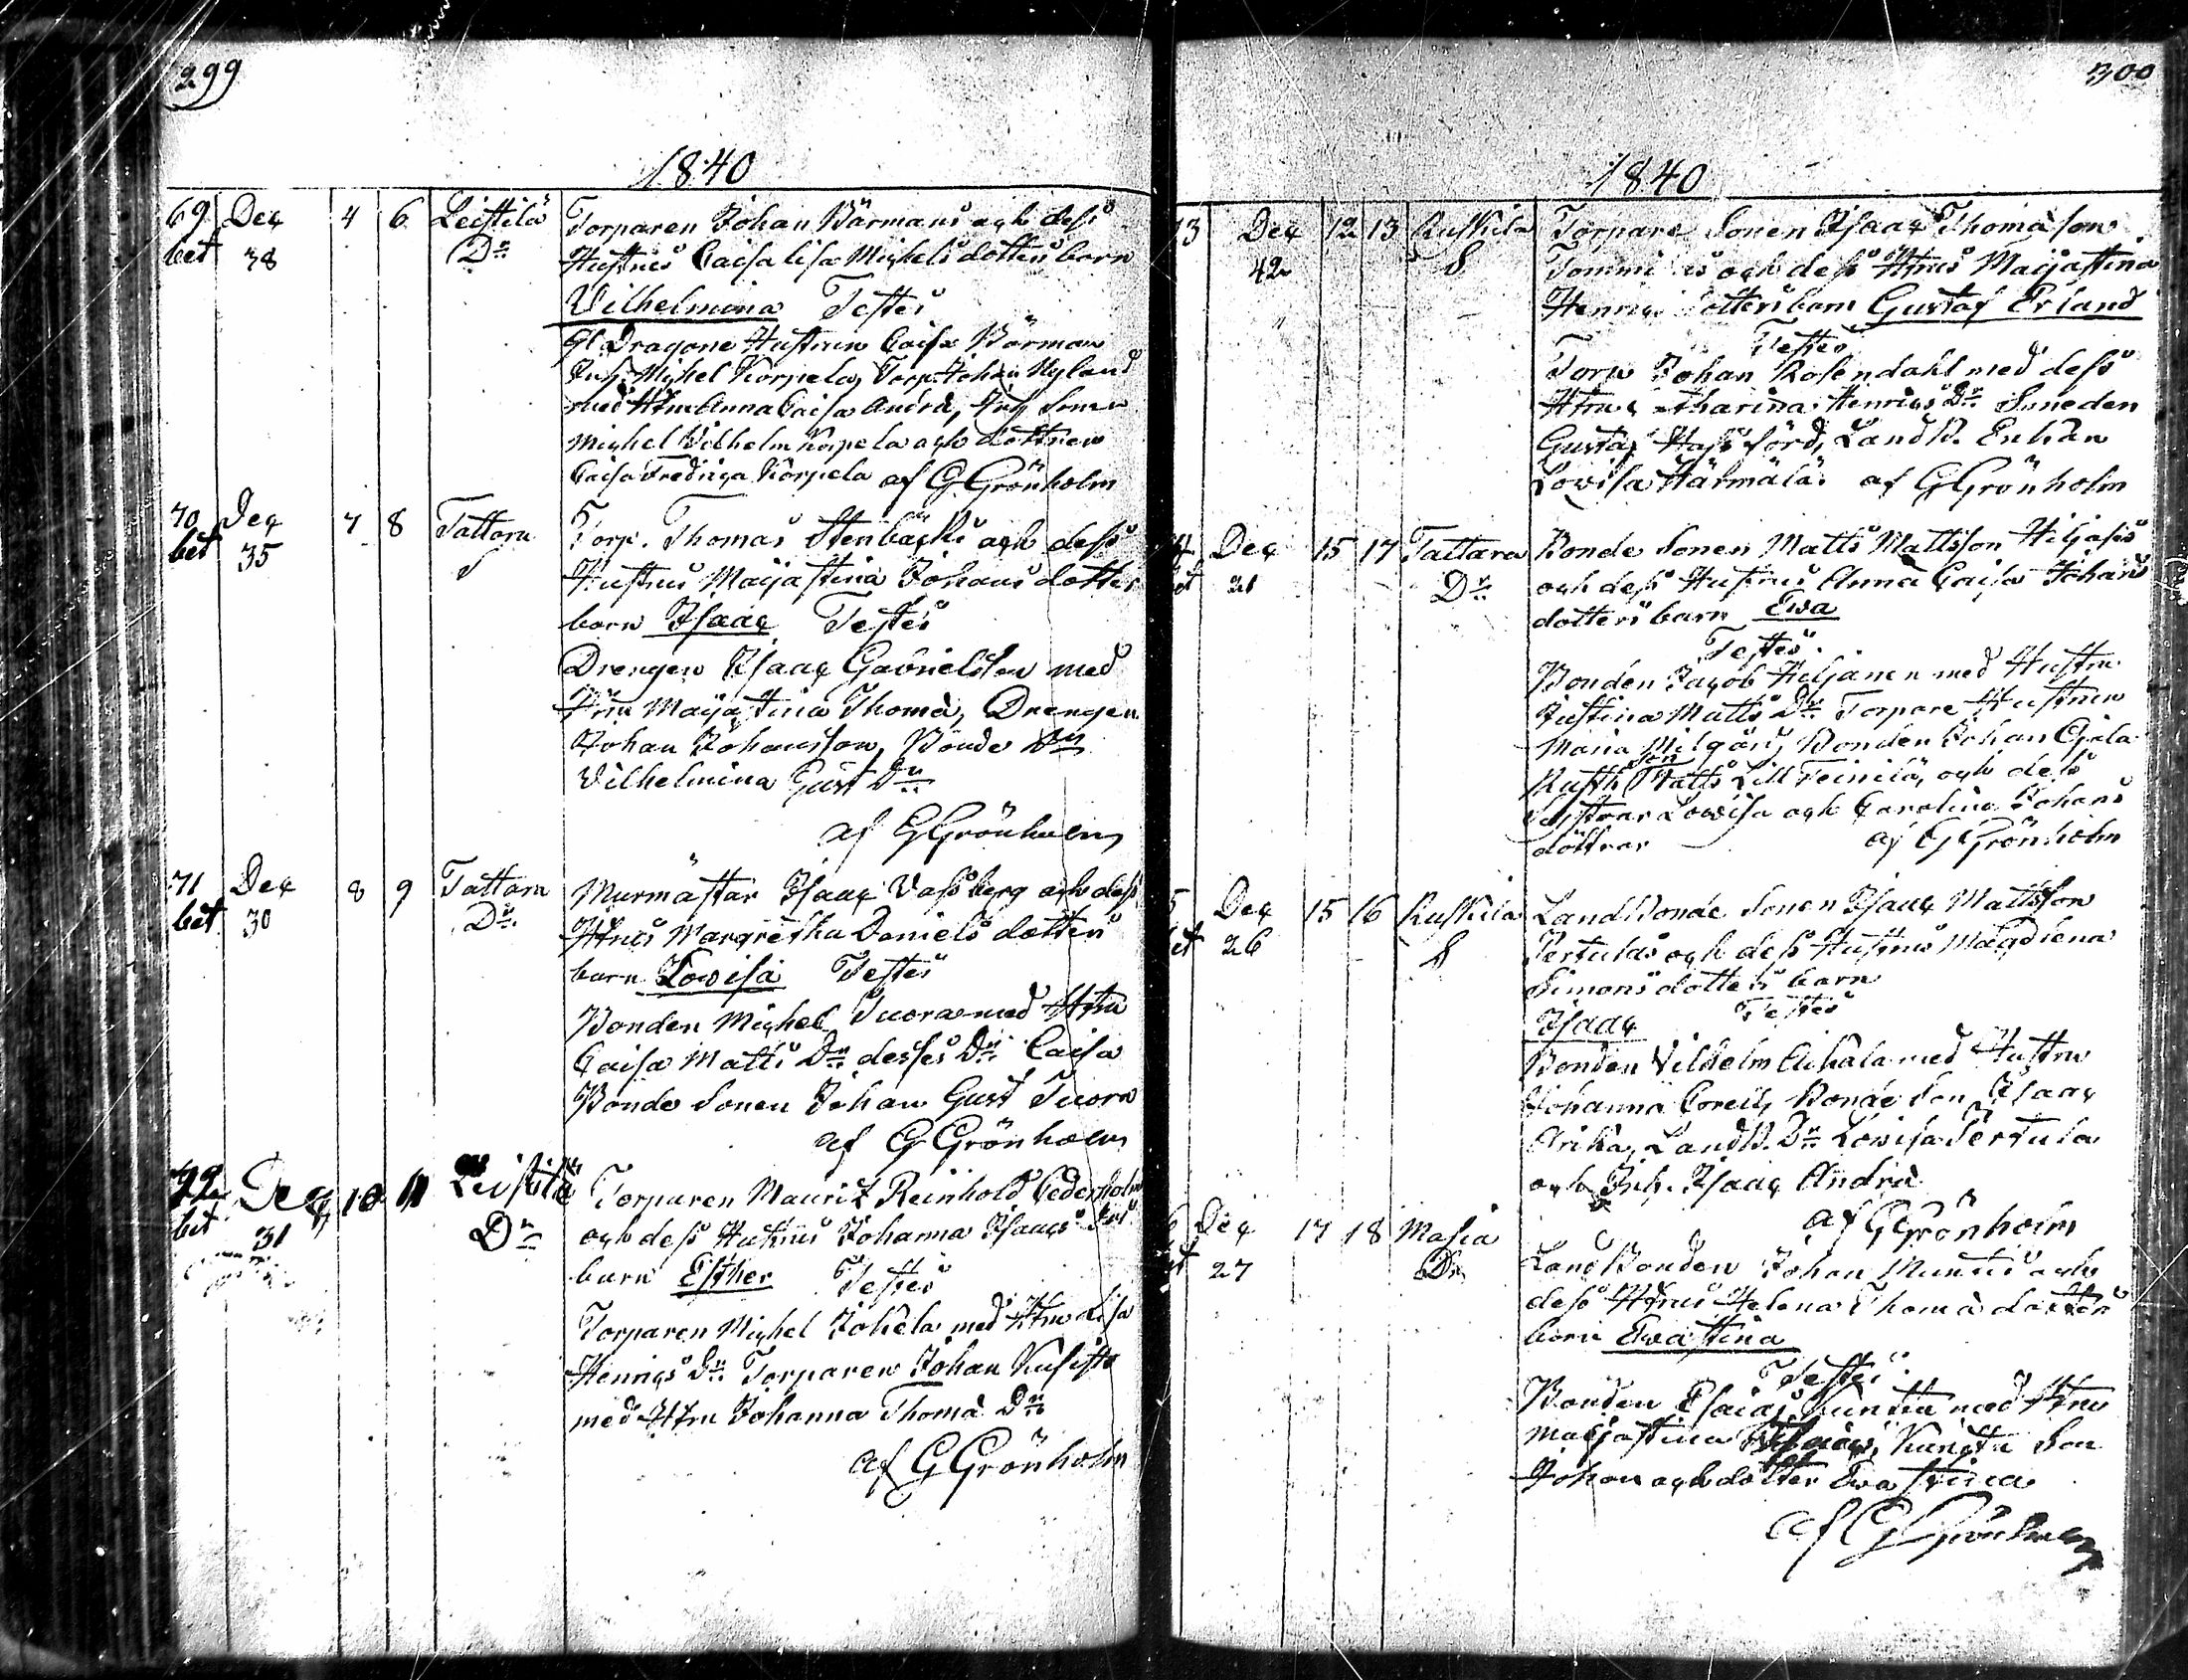 299
1840
69 Dec 4 6 Leistilä Torparen Johan Bärmans och dess
bet 38 Dr Hustrus Caisa Lisa Michels dotters barn
Vilhelmina Testes
Gl Dragone Hustrun Caisa Bärman
Inh. Michel Korpela, Torp. Johan Nyland
med Htru Anna Caisa Andrä, Inh Sonen
Michel Vilhelm Korpela och dottren
Caisa Fredrica Korpela af G Grönholm
70 Dec 7 8 Tattara Torp. Thomas Stenbäcks och dess
bet 35 S Hustrus Maija Stina Johans dotters
barn Isaac Testes
Drengen Isaac Gabrielsson med
Htru Maija Stina Thoma, Drengen
Johan Johansson, Bonde Dr
Vilhelmina Gust Dr
af G Grönholm
71 Dec 8 9 Tattara Murmästar Isaac Vassberg och dess
bet 30 Dr Htrus Margretha Daniels dotters
barn Lovisa Testes
Bonden Michel Tuora med Htru
Caisa Matts Dr desses Dr Caisa
Bonde Sonen Johan Gust Tuora
af G Grönholm
72 Dec 10 11 Leistilä Torparen Maurits Reinhold Cederholm
bet 31 Dr och dess Hustrus Johanna Isaacs Dr
barn Esther Testes
Torparen Michel Johela med Htru Lisa
Henrics Dr Torparen Johan Kusisto
med Htru Johanna Thoma Dr
af G Grönholm
300
1840
73 Dec 12 13 Ruskila Torpare Sonen Isaac Thomasson
42 S Tommi och dess Htrus Maijastina
Henrics dotters barn Gustaf Erland
Testes
Torp Johan Rosendahl med dess
Htru Henrics Dr Smeden
Gustaf Landb. Enkan
Lovisa Härmälä. af G Grönholm
74 Dec 15 17 Tattara Bonde Sonen Matts Mattsson Hiljas
bet 21 Dr och dess Hustrus Anna Caisa Johans
dotters barn Ewa
Testes
Bonden Jacob Hiljanen med Hustru
Justina Matts Dr Torpare Hustrun
Maria Bonden Johan
son Matts Lill Teinilä, och dess
Systrar Lovisa och Carolina Johans
döttrar af G Grönholm
5 Dec 15 16 Ruskila Land Bonde Sonen Isaac Mattsson
bet 26 S Pertulas och dess Hustrus Magdlena
Simons dotters barn
Isaac Testes
Bonden Vilhelm med Hustru
Johanna Bonde Son Isaac
Landb. Dr Lovisa Pertula
och Inh. Isaac Andrä
af G Grönholm
6 Dec 17 18 Masia Land Bonden Johan och
bet 27 Dr dess Htrus Helena Thoma dotters
barn Ewa Stina
Testes
Bonden Esaias med Htru
Maijastina Son
Johan och dotter Ewa Stina
af G Grönholm